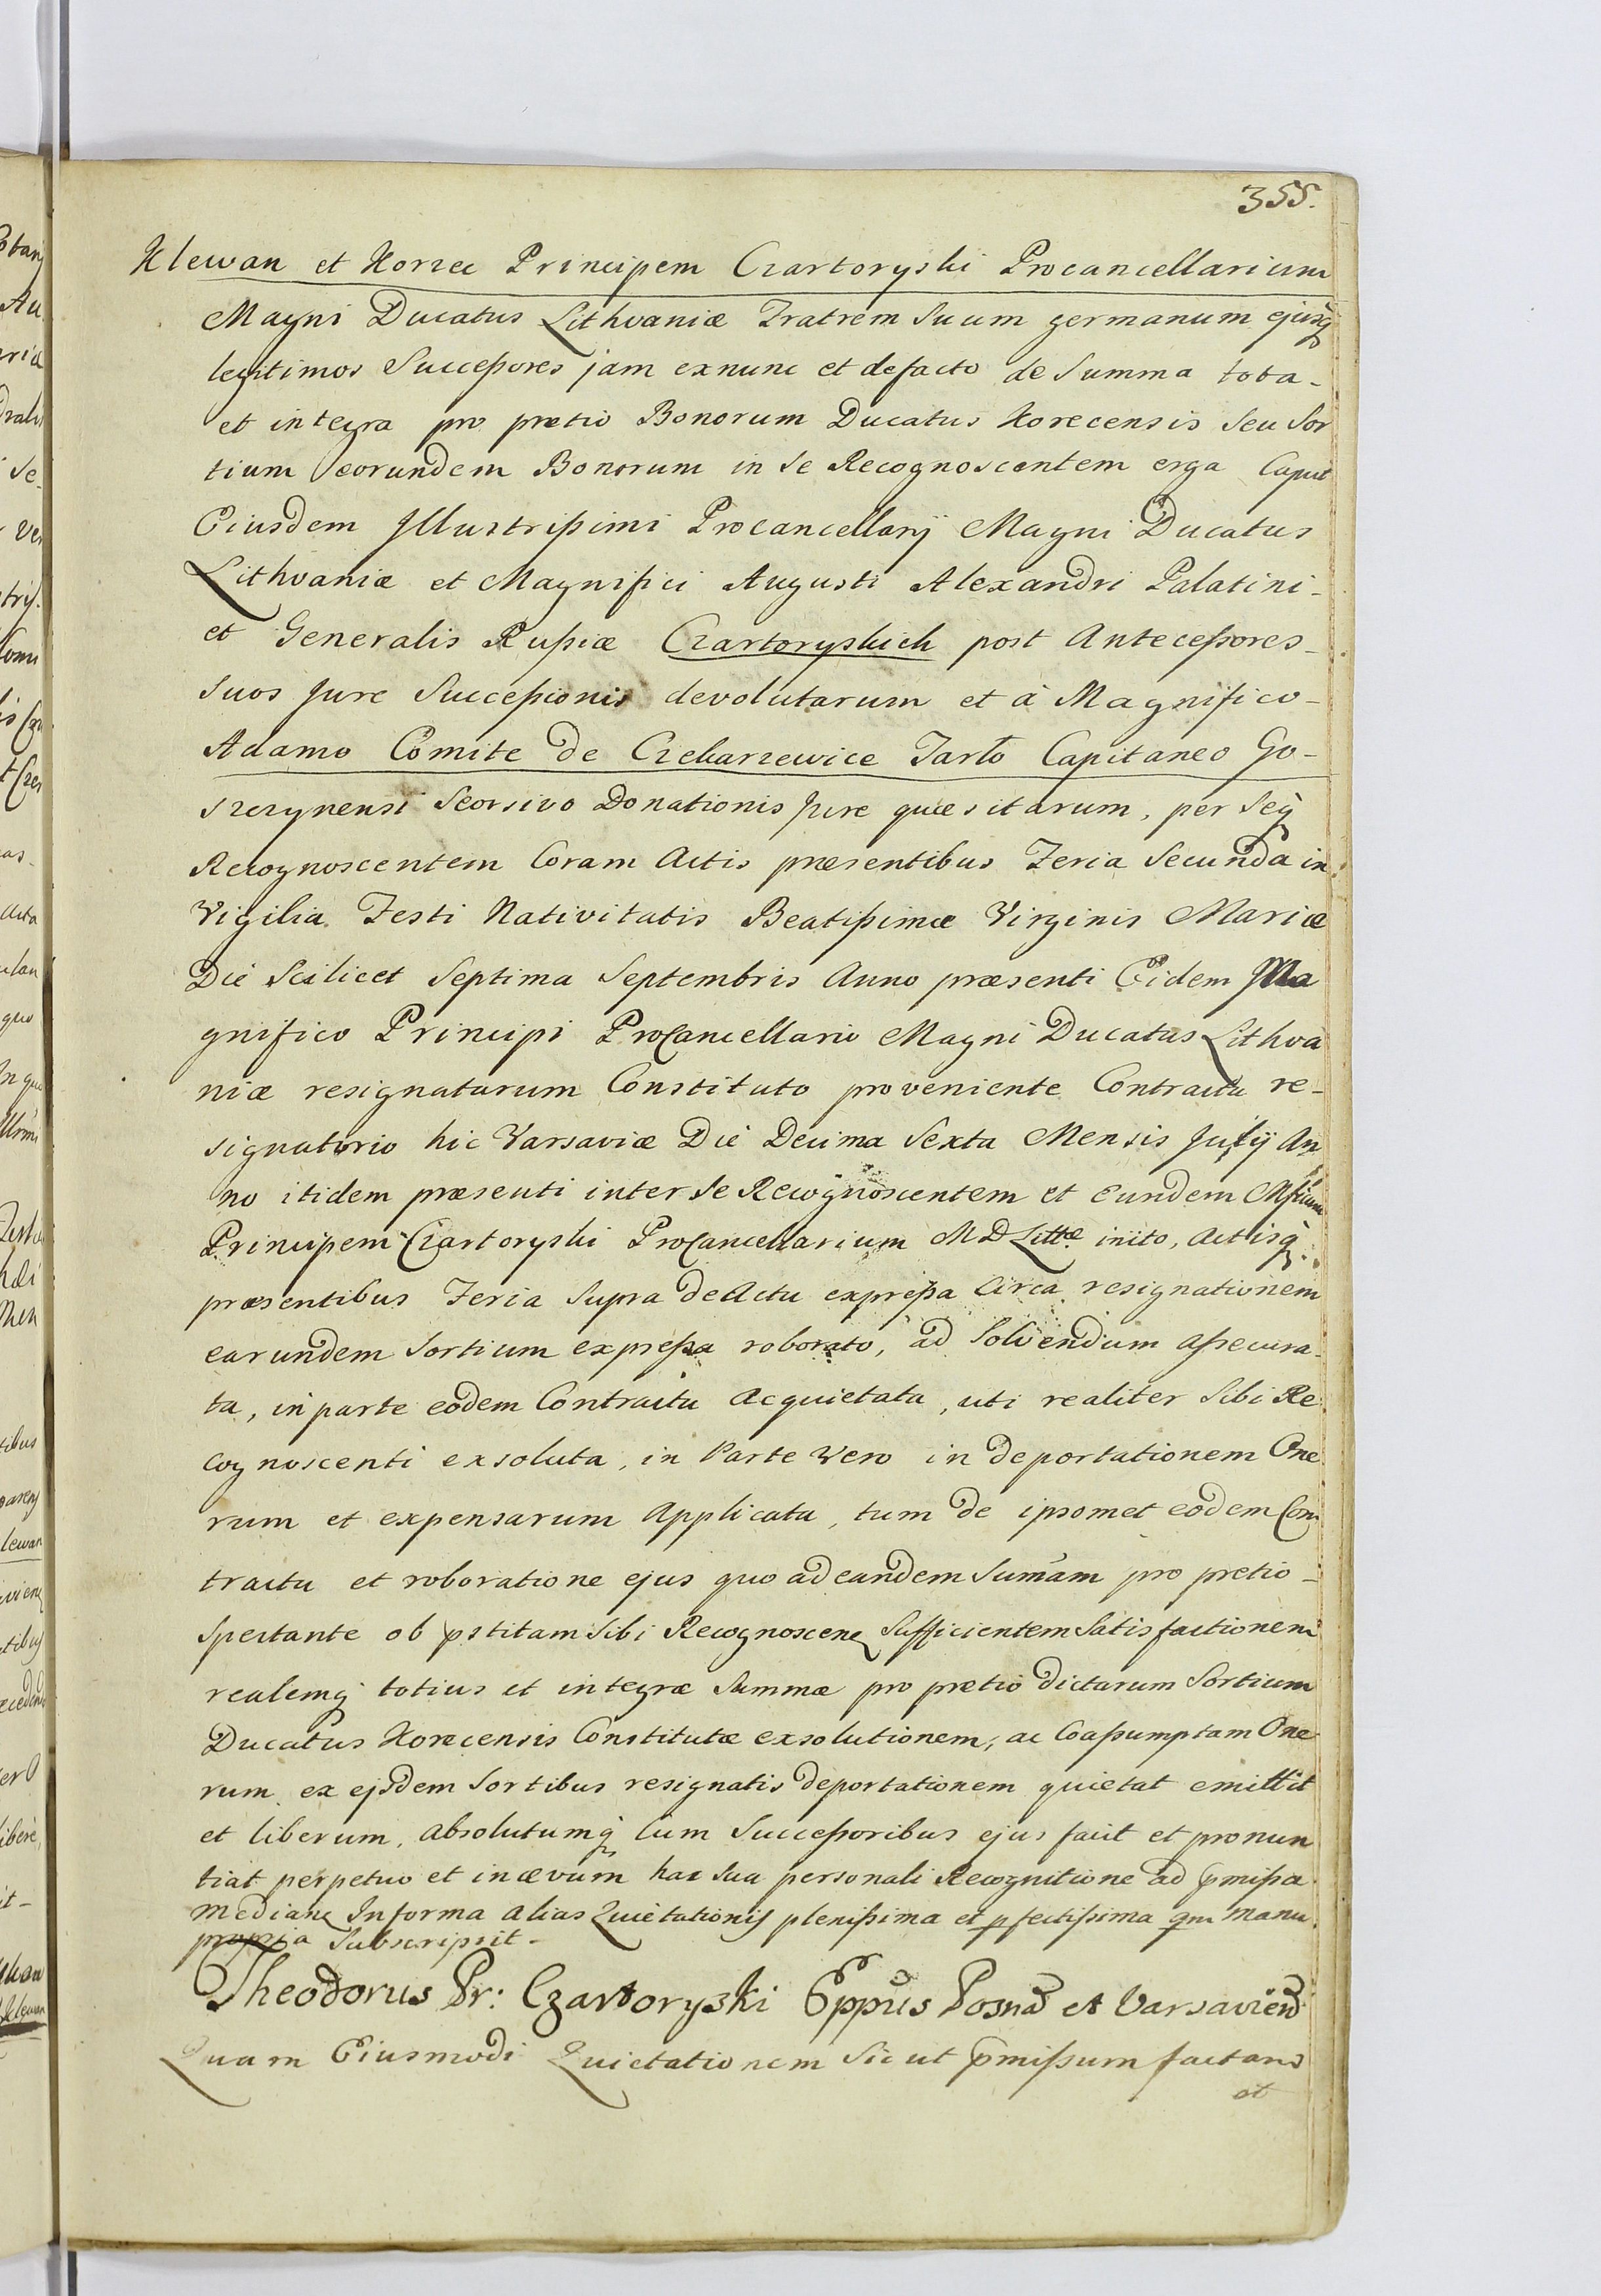 355.
Klewan et Korzec Principem Czartoryski Procancellarium
Magni Ducatus Lithvaniæ Fratrem Suum germanum ejusq
legitimos Successores jam exnunc et defacto de Summa tota-
et integra pro pretio Bonorum Ducatus Korecensis Seu Sor
tium eorundem Bonorum in Se Recognoscentem erga Caput
Eiusdem Illustrissimi Procancellarij Magni Ducatus
Lithvaniæ et Magnifici Augusti Alexandri Palatini-
et Generalis Russiæ Czartoryskich post Antecessores-
Suos Jure Successionis devolutarum et à Magnifico-
Adamo Comite de Czekarzewice Tarło Capitaneo Go-
szczynensi Seorsivo Donationis Jure quæsitarum, per Seq
Recognoscentem Coram Actis præsentibus Feria Secunda in
Vigilia Festi Nativitatis Beatissimæ Virginis Mariæ
Die Scilicet Septima Septembris Anno præsenti Eidem Ma
gnifico Principi ProCancellario Magni Ducatus Lithva
niæ resignatarum Constituto proveniente Contractu re-
signatorio hic Varsaviæ Die Decima Sexta Mensis Julij An
no itidem præsenti inter Se Recognoscentem et Eundem Mficum
Principem Czartoryski ProCancellarium M D Littæ inito, Actisq
præsentibus Feria Supra de Actu expressa Circa resignationem
earundem Sortium expressa roborato, ad Solvendum assecura-
ta, in parte eodem Contractu Acquietata, uti realiter Sibi Re
cognoscenti exsoluta, in Parte Vero in deportationem One
rum et expensarum Applicata, tum de ipsomet eodem Con
tractu et roboratione ejus quo ad eandem Sumam pro pretio-
Spectante ob pstitam Sibi Recognoscen Sufficientem Satisfactionem
realemq totius et integræ Summæ pro pretio dictarum Sortium
Ducatus Korecensis Constitutæ exsolutionem, ac Coassumptam One
rum ex ejsdem Sortibus resignatis deportationem quietat emittit
et liberum, Absolutumq cum Successoribus ejus facit et pronun
tiat perpetuo et in ævum hac Sua personali Recognitione ad pmissa
median Informa alias Quietationis plenissima et pfectissima qm Manu
propria Subscripsit-
Theodorus Pr: Czartoryski Eppus Posna et Varsavien
Quam Eiusmodi Quietationem Sicut pmissum factam
et